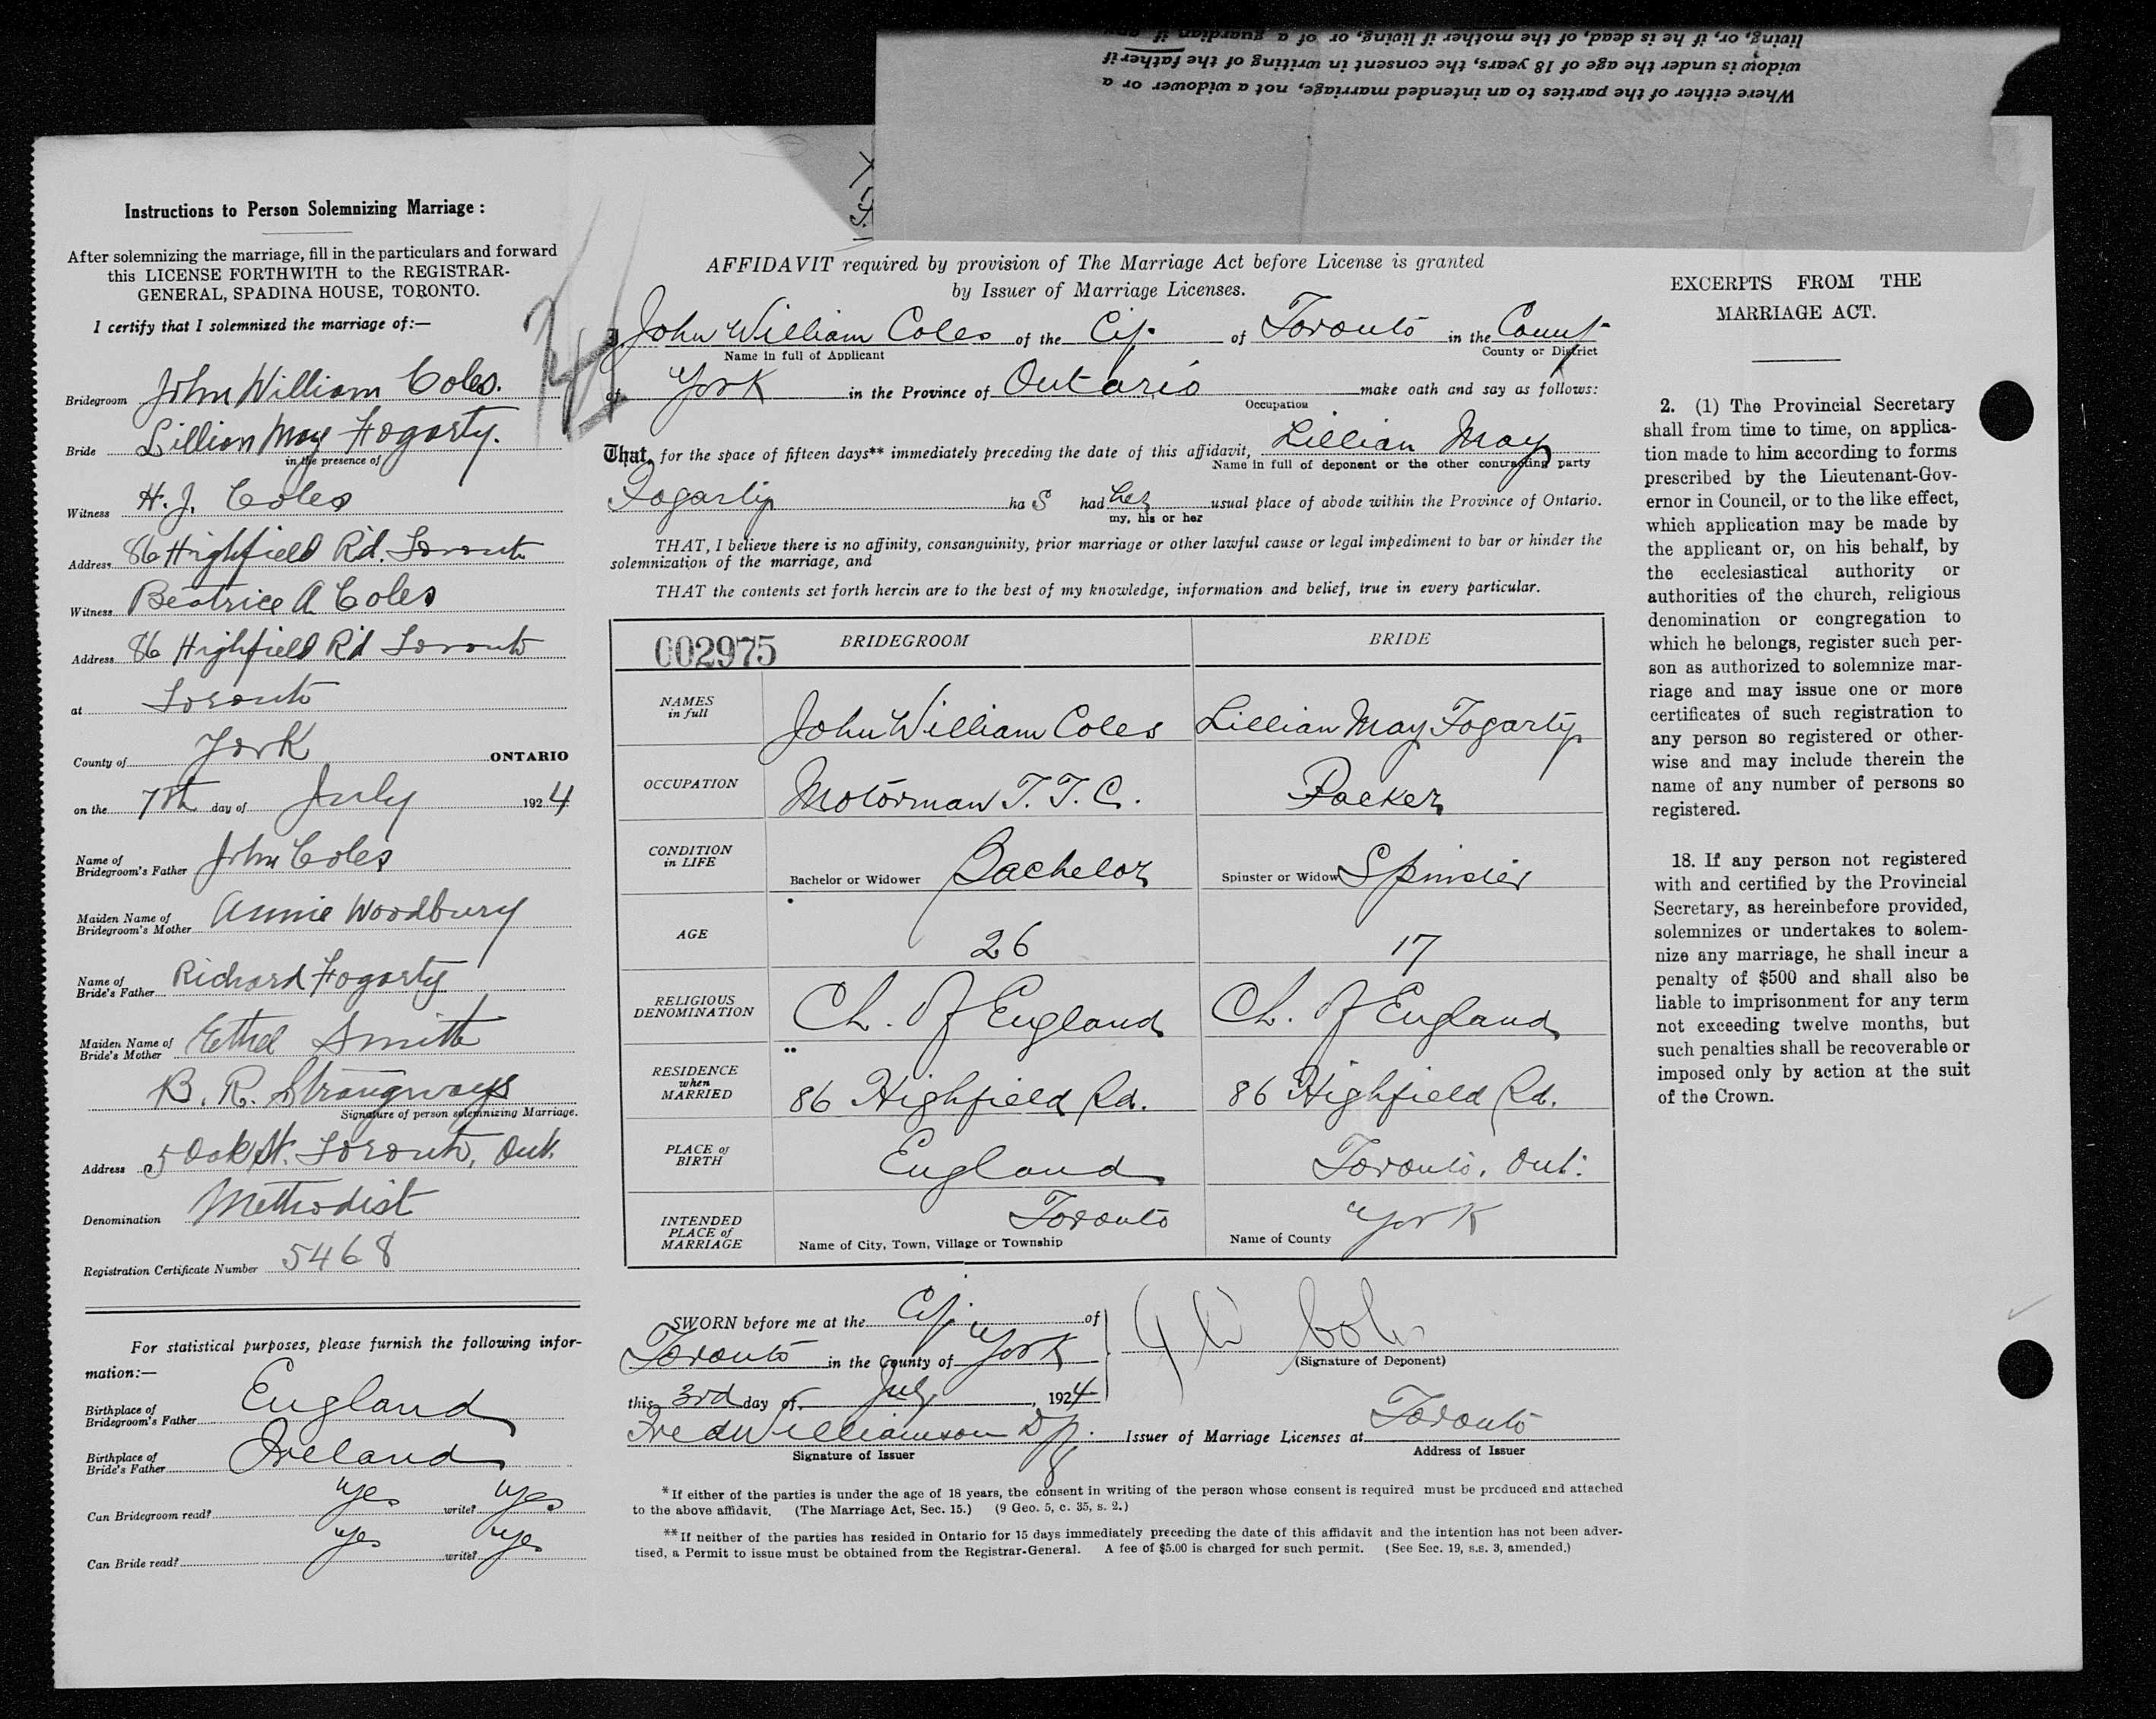 living, or, if he is dead, of the mother if living, or of a guardian if any
widow is under the age of 18 years, the consent in writing of the father if
Where either of the parties to an intended marriage, not a widower or a
Instructions to Person Solemnizing Marriage :
After solemnizing the marriage, fill in the particulars and forward
this LICENSE FORTHWITH to the REGISTRAR-
GENERAL, SPADINA HOUSE, TORONTO.
I certify that I solemnized the marriage of:—
Bridegroom John William Coles.
Bride Lillian May Fogarty.
in the presence of
Witness H. J. Coles
Address 86 Highfield Rd. Toronto
Witness Beatrice A Coles
Address 86 Highfield Rd Toronto
at Toronto
County of York ONTARIO
on the 7th day of July 1924
Name of
Bridegroom's Father John Coles
Maiden Name of
Bridegroom's Mother Annie Woodbury
Name of
Bride's Father Richard Fogarty
Maiden Name of
Bride's Mother Ethel Smith
B. R. Strangways
Signature of person solemnizing Marriage.
Address 5 Oak St. Toronto, Ont.
Denomination Methodist
Registration Certificate Number 5468
For statistical purposes, please furnish the following infor-
mation:—
Birthplace of
Bridegroom's Father England
Birthplace of
Bride's Father Ireland
Can Bridegroom read? Yes write? Yes
Can Bride read? Yes write? Yes
AFFIDAVIT required by provision of The Marriage Act before License is granted
by Issuer of Marriage Licenses.
I, John William Coles of the City of Toronto in the County
Name in full of Applicant County or District
of York in the Province of Ontario make oath and say as follows:
Occupation
That, for the space of fifteen days** immediately preceding the date of this affidavit, Lillian May
Name in full of deponent or the other contracting party
Fogarty ha s had her usual place of abode within the Province of Ontario.
my, his or her
THAT, I believe there is no affinity, consanguinity, prior marriage or other lawful cause or legal impediment to bar or hinder the
solemnization of the marriage, and
THAT the contents set forth herein are to the best of my knowledge, information and belief, true in every particular.
002975 BRIDEGROOM BRIDE
NAMES
in full John William Coles Lillian May Fogarty
OCCUPATION Motorman T.T.C. Packer
CONDITION
in LIFE Bachelor or Widower Bachelor Spinster or Widow Spinster
AGE 26 17
RELIGIOUS
DENOMINATION Ch. of England Ch. of England
RESIDENCE
when
MARRIED 86 Highfield Rd. 86 Highfield Rd.
PLACE of
BIRTH England Toronto, Ont.
INTENDED
PLACE of
MARRIAGE Toronto York
Name of City, Town, Village or Township Name of County
SWORN before me at the City of
Toronto in the County of York
this 3rd day of July, 1924
J W Coles
(Signature of Deponent)
Fred Williamson Dpy. Issuer of Marriage Licenses at Toronto
Signature of Issuer Address of Issuer
*If either of the parties is under the age of 18 years, the consent in writing of the person whose consent is required must be produced and attached
to the above affidavit. (The Marriage Act, Sec. 15.) (9 Geo. 5, c. 35, s. 2.)
**If neither of the parties has resided in Ontario for 15 days immediately preceding the date of this affidavit and the intention has not been adver-
tised, a Permit to issue must be obtained from the Registrar-General. A fee of $5.00 is charged for such permit. (See Sec. 19, s.s. 3, amended.)
EXCERPTS FROM THE
MARRIAGE ACT.
2. (1) The Provincial Secretary
shall from time to time, on applica-
tion made to him according to forms
prescribed by the Lieutenant-Gov-
ernor in Council, or to the like effect,
which application may be made by
the applicant or, on his behalf, by
the ecclesiastical authority or
authorities of the church, religious
denomination or congregation to
which he belongs, register such per-
son as authorized to solemnize mar-
riage and may issue one or more
certificates of such registration to
any person so registered or other-
wise and may include therein the
name of any number of persons so
registered.
18. If any person not registered
with and certified by the Provincial
Secretary, as hereinbefore provided,
solemnizes or undertakes to solem-
nize any marriage, he shall incur a
penalty of $500 and shall also be
liable to imprisonment for any term
not exceeding twelve months, but
such penalties shall be recoverable or
imposed only by action at the suit
of the Crown.